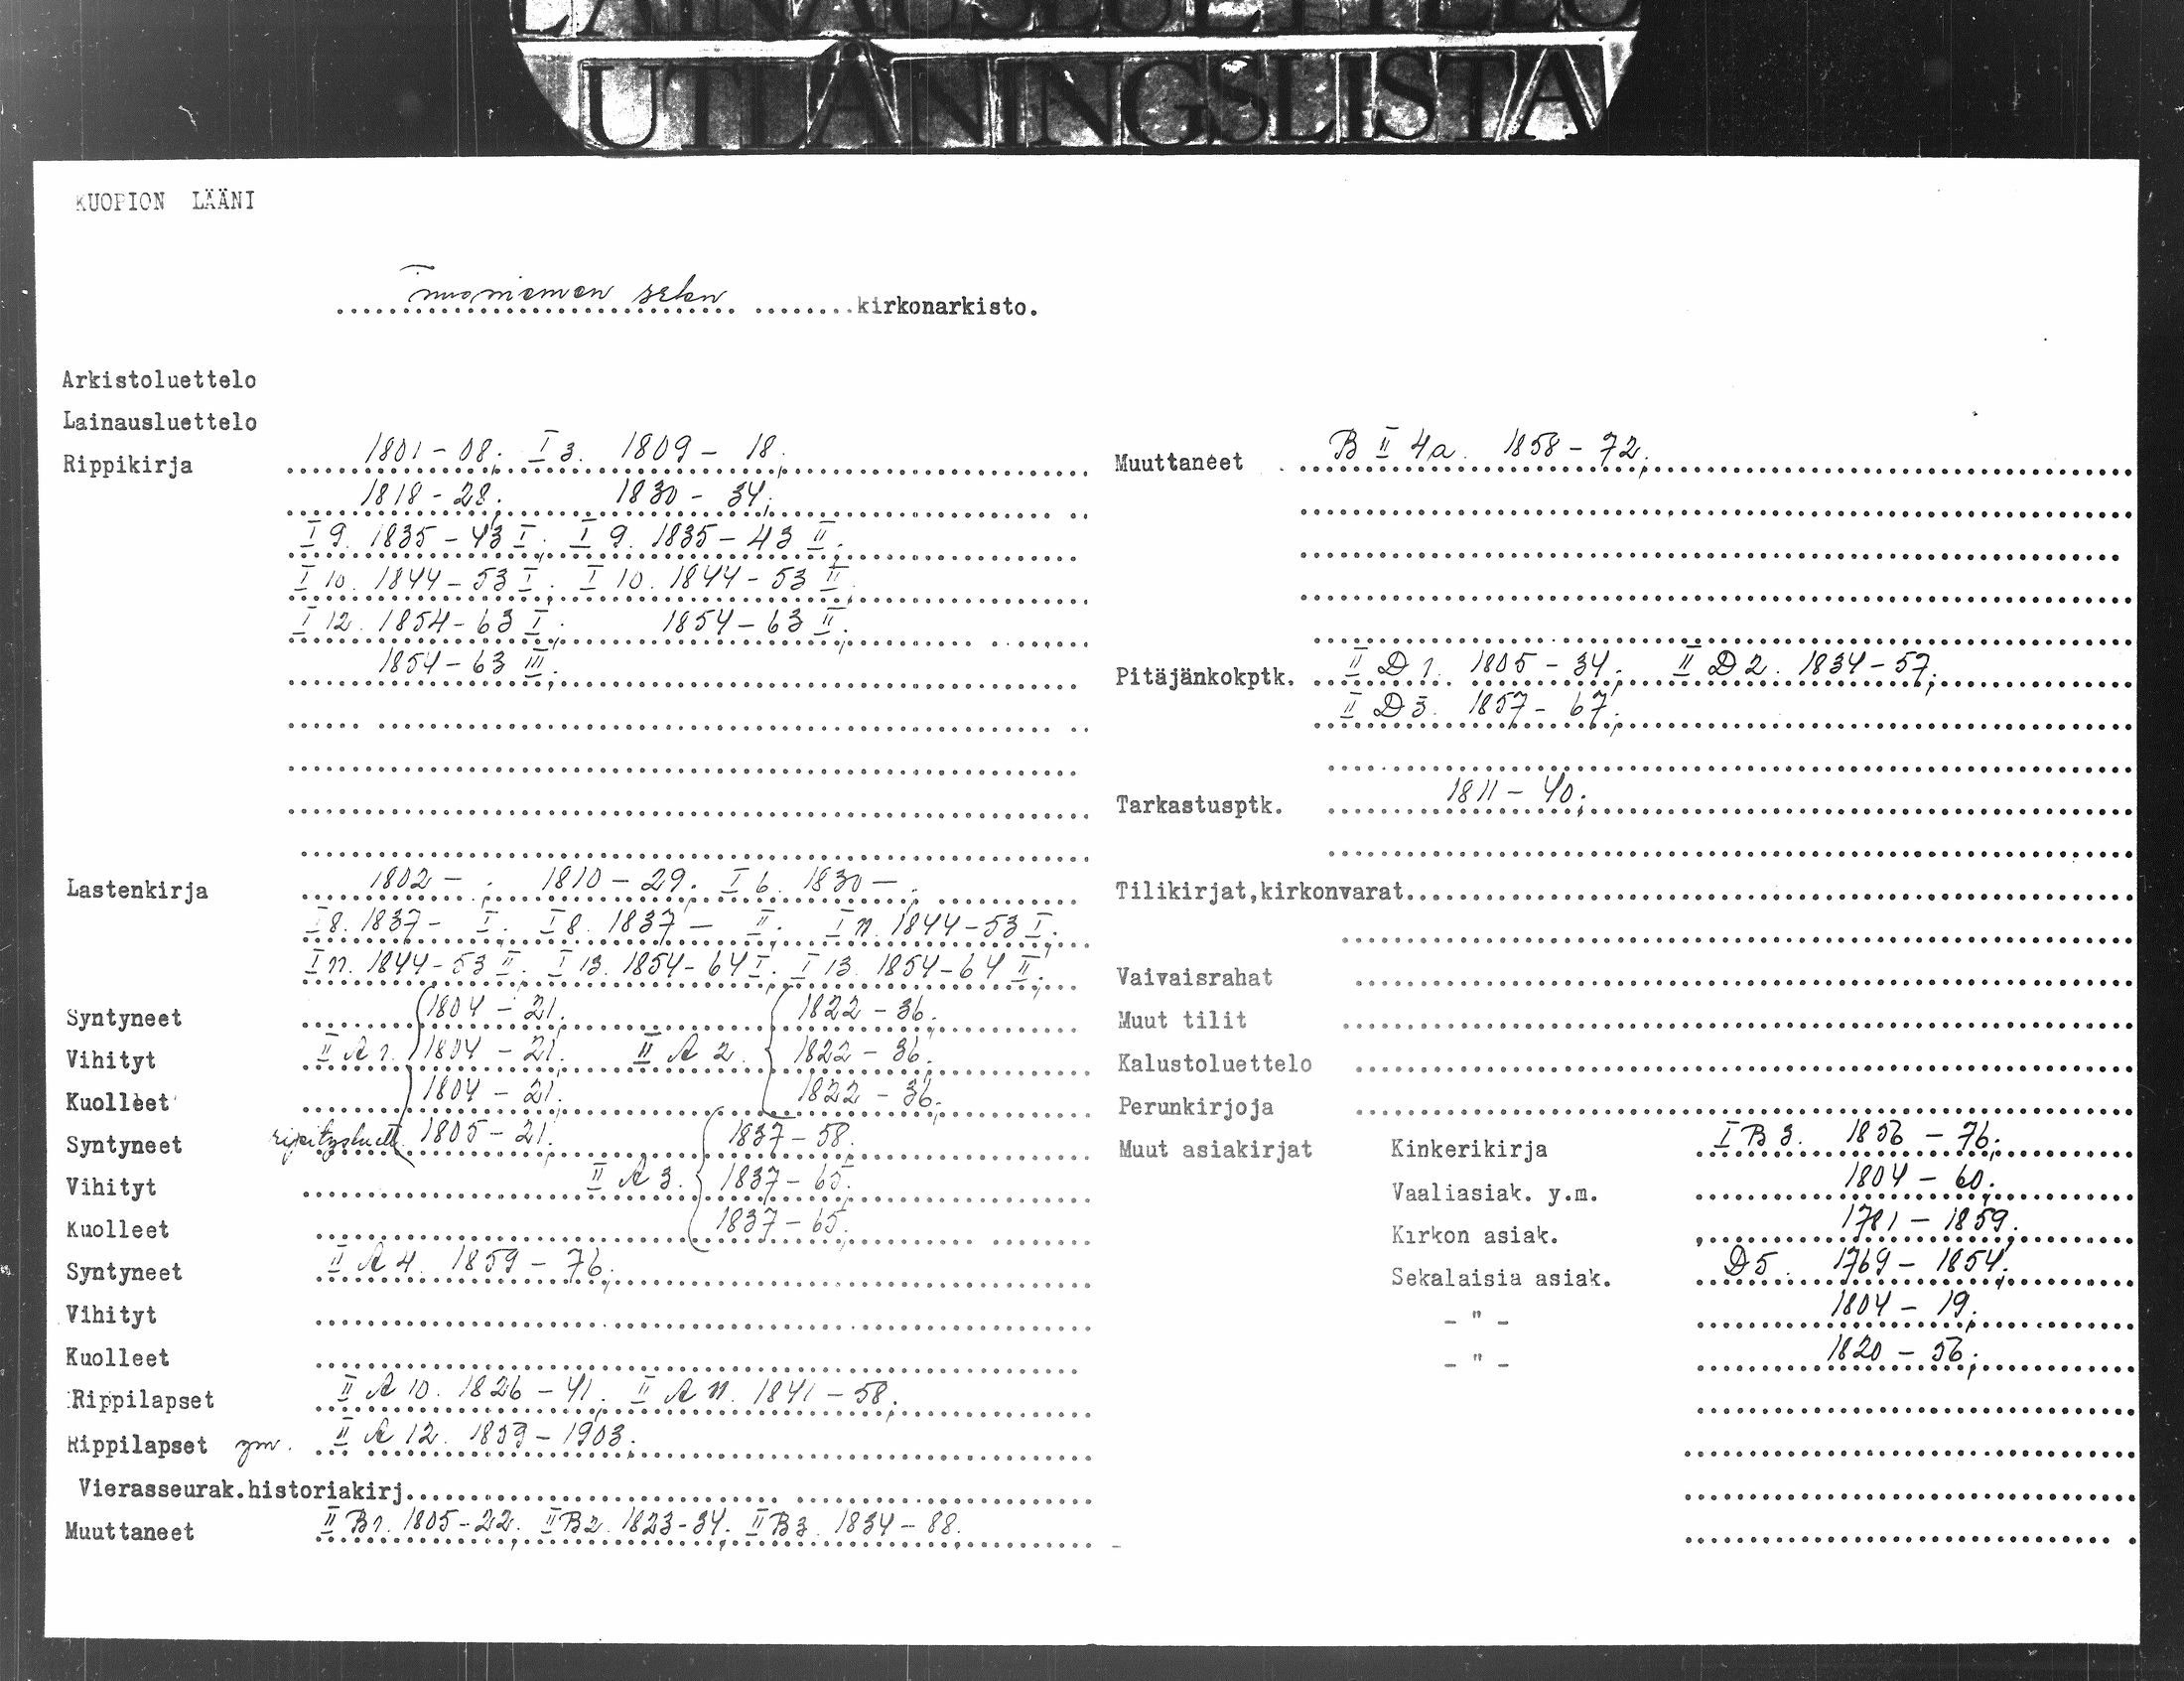 LAINAUSLUETTELO
UTLÅNINGSLISTA
KUOPION LÄÄNI
Tuusniemen srkn kirkonarkisto.
Arkistoluettelo
Lainausluettelo
Rippikirja 1801-08; I 3. 1809- 18;
1818-28; 1830- 34;
I 9. 1835-43 I; I 9. 1835-43 II;
I 10. 1844-53 I; I 10. 1844-53 II;
I 12. 1854-63 I; 1854-63 II;
1854-63 III;
Lastenkirja 1802- ; 1810-29; I 6. 1830-;
I 8. 1837- I; I 8. 1837- II; I 11. 1844-53 I;
I 11. 1844-53 II; I 13. 1854-64 I; I 13. 1854-64 II;
Syntyneet 1804-21; 1822-36;
Vihityt II A 1. 1804-21; II A 2. 1822-36;
Kuolleet 1804-21; 1822-36;
Syntyneet 1805-21; 1837-58;
Vihityt II A 3. 1837-65;
Kuolleet 1837-65;
Syntyneet II A 4. 1859-76;
Vihityt
Kuolleet
Rippilapset II A 10. 1826-41; II A 11. 1841-58;
Rippilapset ym. II A 12. 1859-1903;
Vierasseurak.historiakirj.
Muuttaneet II B 1. 1805-22; II B 2. 1823-34; II B 3. 1834-88.
Muuttaneet B II 4a. 1858-72;
Pitäjänkokptk. II D 1. 1805-34; II D 2. 1834-57;
II D 3. 1857-67;
Tarkastusptk. 1811-40;
Tilikirjat,kirkonvarat.
Vaivaisrahat
Muut tilit
Kalustoluettelo
Perunkirjoja
Muut asiakirjat Kinkerikirja I B 3. 1856-76;
Vaaliasiak. y.m. 1804-60;
Kirkon asiak. 1781-1859;
Sekalaisia asiak. D 5. 1769-1854;
- " - 1804-19;
- " - 1820-56;